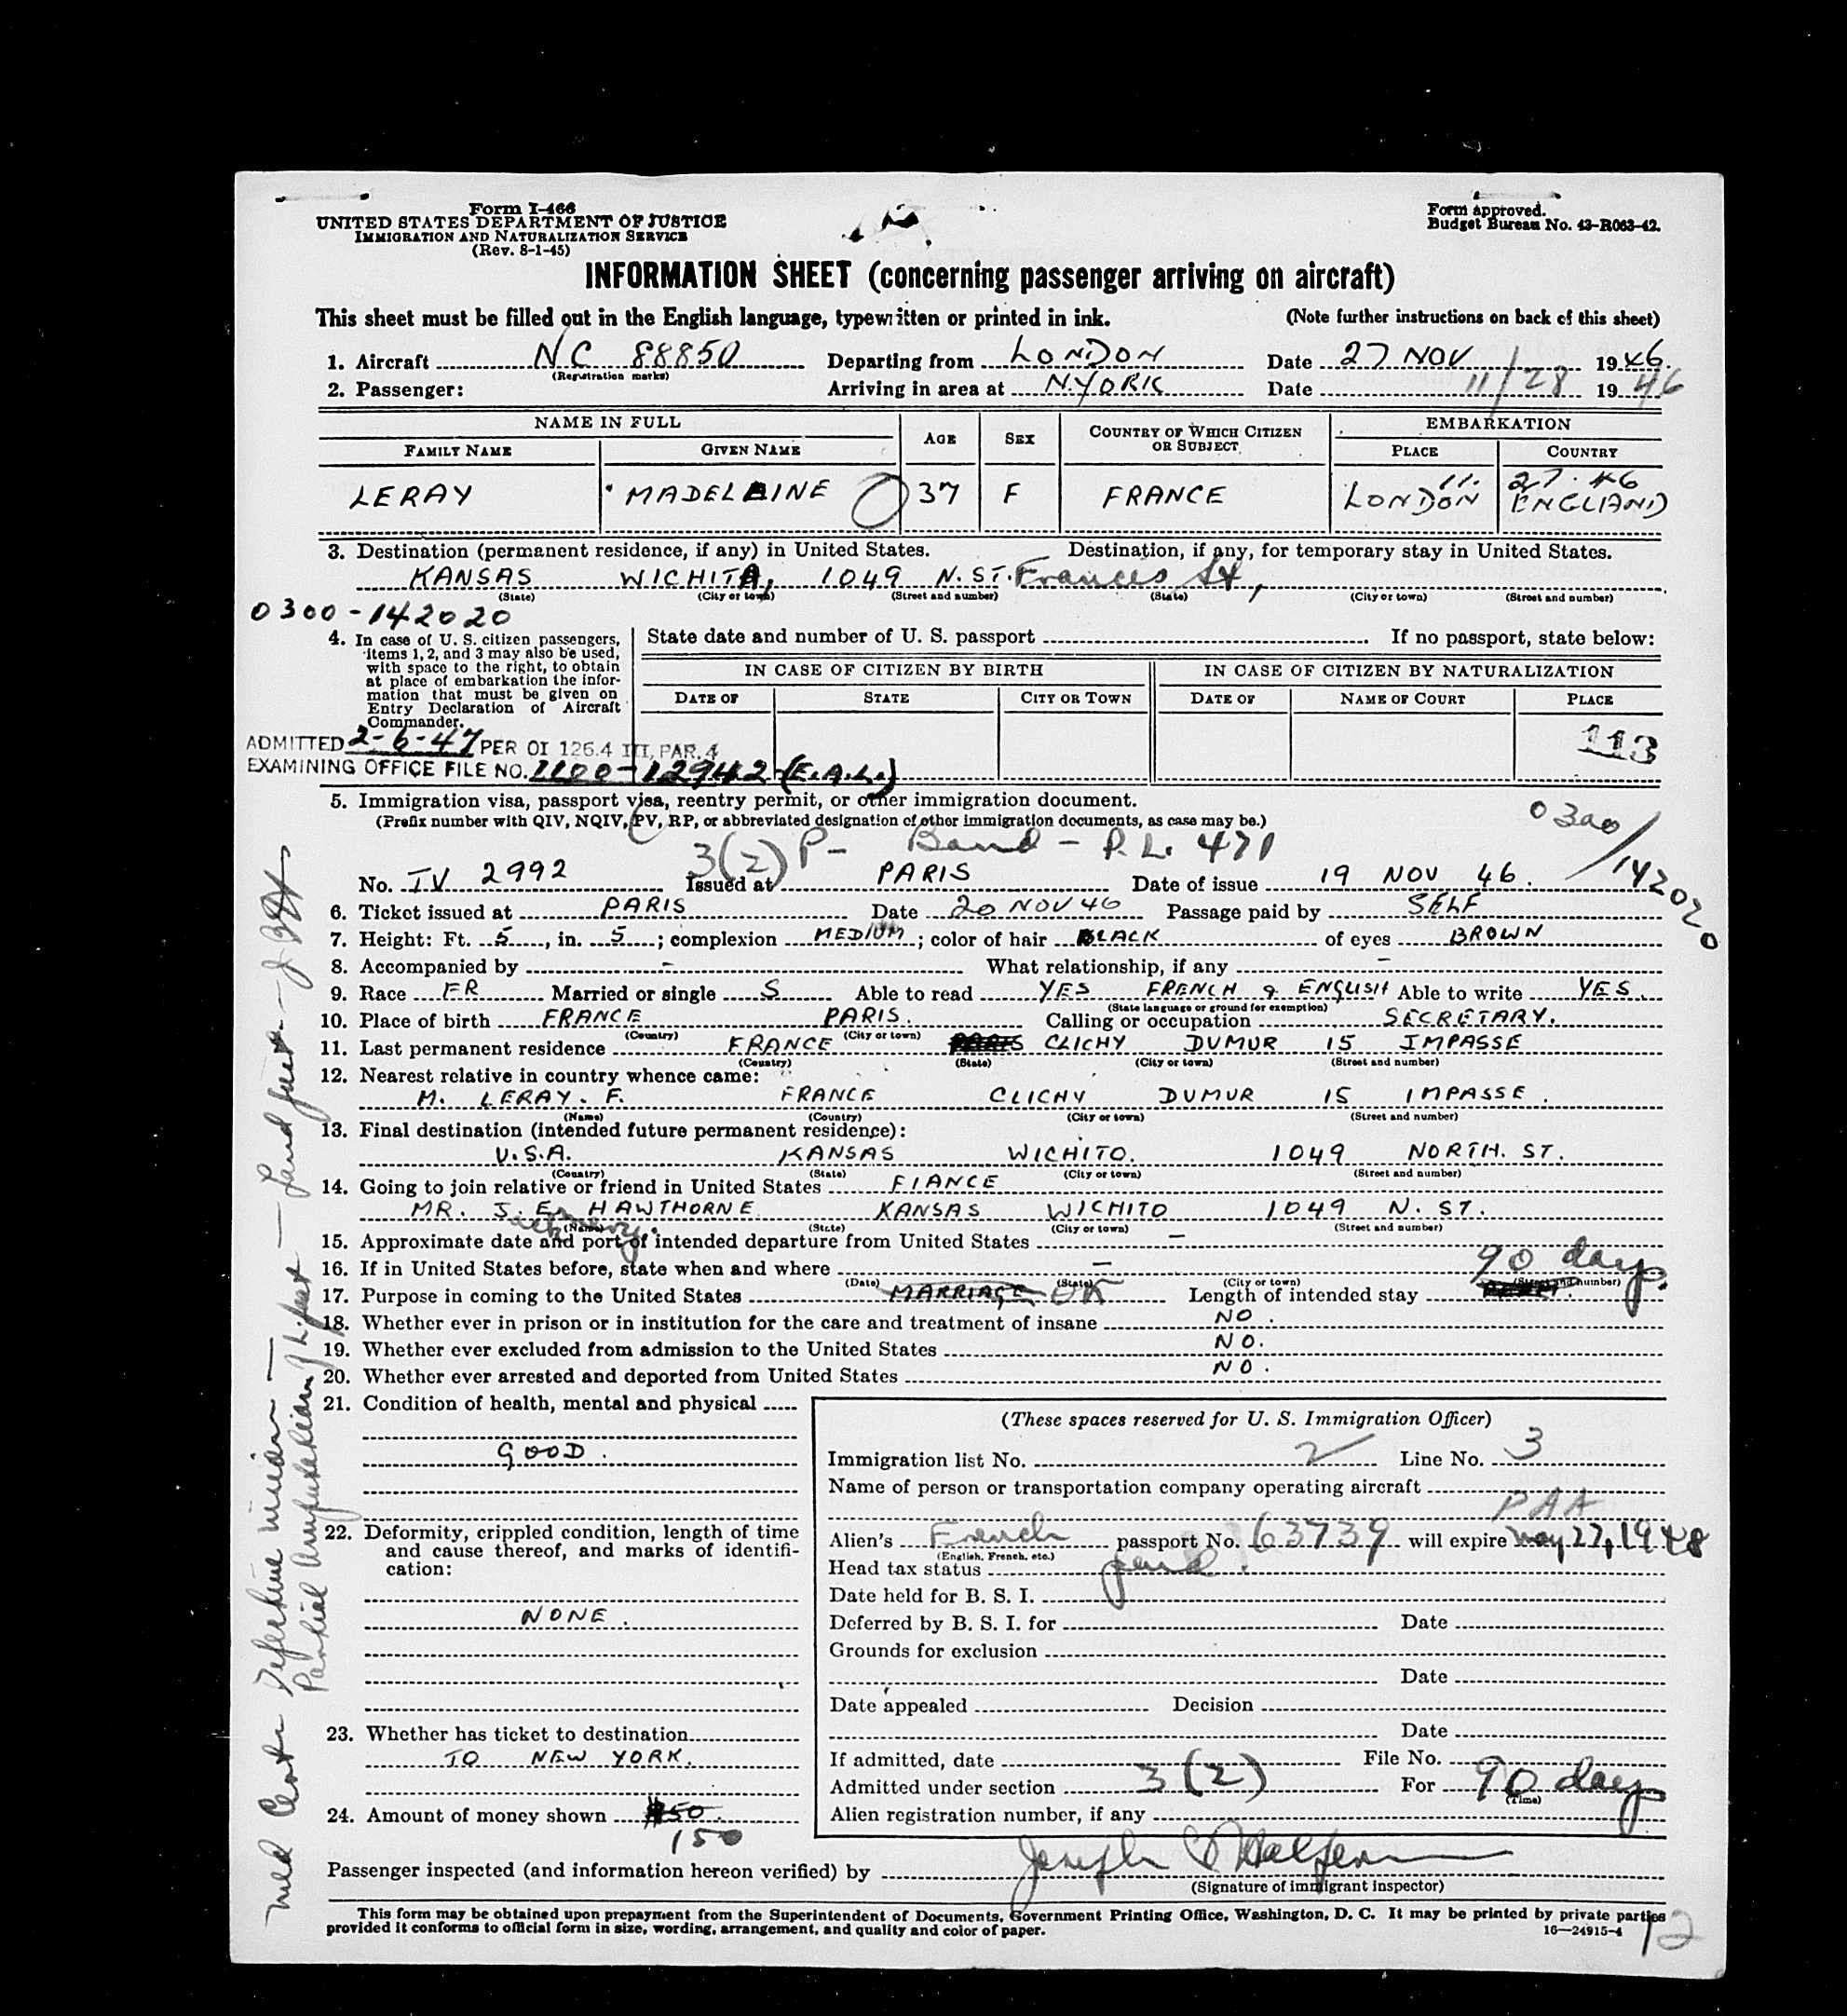 Form I-466
UNITED STATES DEPARTMENT OF JUSTICE
IMMIGRATION AND NATURALIZATION SERVICE
(Rev. 8-1-45)
Form approved.
Budget Bureau No. 43-R063-42.
INFORMATION SHEET (concerning passenger arriving on aircraft)
This sheet must be filled out in the English language, typewritten or printed in ink. (Note further instructions on back of this sheet)
1. Aircraft NC 88850 Departing from LONDON Date 27 NOV 1946
(Registration marks)
2. Passenger: Arriving in area at N.YORK Date 11/28 1946
NAME IN FULL AGE SEX COUNTRY OF WHICH CITIZEN OR SUBJECT EMBARKATION
FAMILY NAME GIVEN NAME PLACE COUNTRY
11. 27. 46
LERAY MADELEINE 37 F FRANCE LONDON ENGLAND
3. Destination (permanent residence, if any) in United States. Destination, if any, for temporary stay in United States.
KANSAS WICHITA, 1049 N. ST. Frances St,
(State) (City or town) (Street and number) (State) (City or town) (Street and number)
0300-142020
4. In case of U. S. citizen passengers, items 1, 2, and 3 may also be used, with space to the right, to obtain at place of embarkation the information that must be given on Entry Declaration of Aircraft Commander.
State date and number of U. S. passport If no passport, state below:
IN CASE OF CITIZEN BY BIRTH IN CASE OF CITIZEN BY NATURALIZATION
DATE OF STATE CITY OR TOWN DATE OF NAME OF COURT PLACE
113
ADMITTED 2-6-47 PER OI 126.4 III, PAR. 4
EXAMINING OFFICE FILE NO. 1100-12942 (E.A.L.)
5. Immigration visa, passport visa, reentry permit, or other immigration document.
(Prefix number with QIV, NQIV, PV, RP, or abbreviated designation of other immigration documents, as case may be.)
0300/142020
3(2) P- Band - P.L. 471
No. IV 2992 Issued at PARIS Date of issue 19 NOV 46.
6. Ticket issued at PARIS Date 20 NOV 46 Passage paid by SELF
7. Height: Ft. 5, in. 5; complexion MEDIUM; color of hair BLACK of eyes BROWN
8. Accompanied by - What relationship, if any -
9. Race FR Married or single S Able to read YES FRENCH & ENGLISH Able to write YES.
(State language or ground for exemption)
10. Place of birth FRANCE PARIS. Calling or occupation SECRETARY.
(Country) (City or town)
11. Last permanent residence FRANCE PARIS CLICHY DUMUR 15 IMPASSE
(Country) (State) (City or town) (Street and number)
12. Nearest relative in country whence came:
M. LERAY. F. FRANCE CLICHY DUMUR 15 IMPASSE.
(Name) (Country) (City or town) (Street and number)
13. Final destination (intended future permanent residence):
U.S.A. KANSAS WICHITO. 1049 NORTH. ST.
(Country) (State) (City or town) (Street and number)
14. Going to join relative or friend in United States FIANCE
MR. J. E. HAWTHORNE KANSAS WICHITO 1049 N. ST.
(Name) (State) (City or town) (Street and number)
15. Approximate date and port of intended departure from United States -
16. If in United States before, state when and where -
(Date) (State) (City or town) (Street and number)
17. Purpose in coming to the United States MARRIAGE OK Length of intended stay 90 days.
18. Whether ever in prison or in institution for the care and treatment of insane NO.
19. Whether ever excluded from admission to the United States NO.
20. Whether ever arrested and deported from United States NO.
21. Condition of health, mental and physical
GOOD.
22. Deformity, crippled condition, length of time and cause thereof, and marks of identification:
NONE.
23. Whether has ticket to destination
TO NEW YORK.
24. Amount of money shown $50.
150
(These spaces reserved for U. S. Immigration Officer)
Immigration list No. 2 Line No. 3
Name of person or transportation company operating aircraft
PAA
Alien's French passport No. 63739 will expire May 27, 1948
(English, French, etc.)
Head tax status
Date held for B. S. I.
Deferred by B. S. I. for Date
Grounds for exclusion
Date
Date appealed Decision
Date
If admitted, date File No.
Admitted under section 3(2) For 90 days
(Time)
Alien registration number, if any
Passenger inspected (and information hereon verified) by Joseph
(Signature of immigrant inspector)
This form may be obtained upon prepayment from the Superintendent of Documents, Government Printing Office, Washington, D. C. It may be printed by private parties
provided it conforms to official form in size, wording, arrangement, and quality and color of paper. 16—24915-4
12
Med Cert Defective vision —
Partial amputation